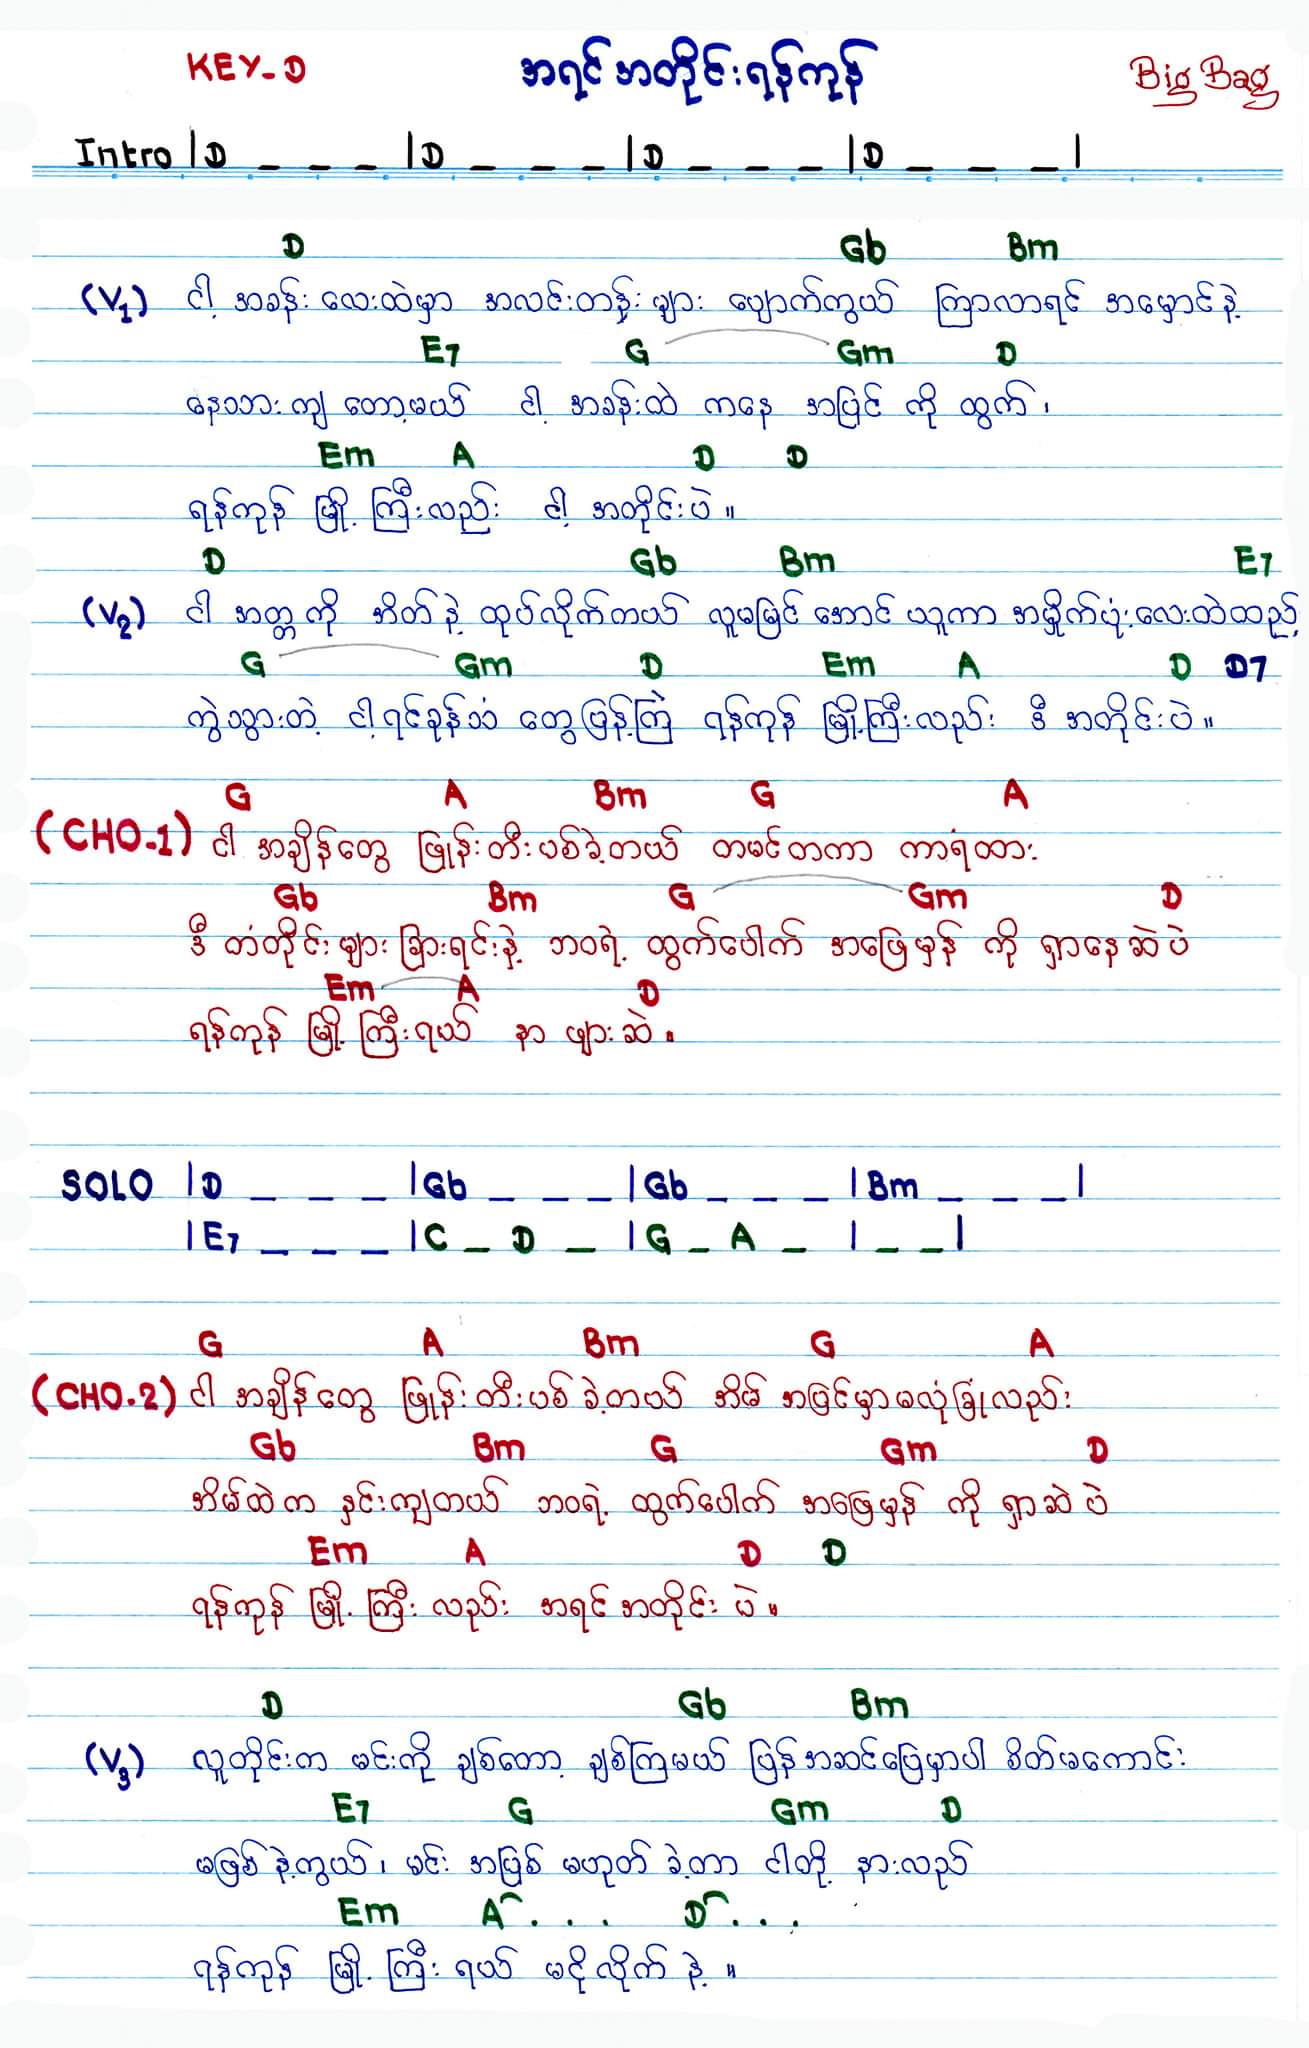 KEY-D အရင်အတိုင်းရန်ကုန် Big Bag
Intro |D _ _ _ |D _ _ _ |D _ _ _ |D _ _ _|
D Gb Bm
(V1) ငါ့ အခန်း လေးထဲမှာ အလင်းတန်း များ ပျောက်ကွယ် ကြာလာရင် အမှောင်နဲ့
E7 G Gm D
နေသားကျ တော့မယ် ငါ့ အခန်းထဲ ကနေ အပြင် ကို ထွက်၊
Em A D D
ရန်ကုန် မြို့ ကြီးလည်း ငါ့ အတိုင်းပဲ။
D Gb Bm E7
(V2) ငါ အတ္တကို အိတ်နဲ့ ထုပ်လိုက်တယ် လူမမြင် အောင် ယူကာ အမှိုက်ပုံးလေးထဲထည့်
G Gm D Em A D D7
ကွဲသွားတဲ့ ငါ့ရင်ခုန်သံ တွေပြန့်ကြဲ ရန်ကုန် မြို့ကြီးလည်း ဒီ အတိုင်းပဲ။
G A Bm G A
(CHO.1) ငါ အချိန်တွေ ဖြုန်းတီးပစ်ခဲ့တယ် တမင်တကာ ကာရံထား
Gb Bm G Gm D
ဒီ တံတိုင်းများ ခြားရင်းနဲ့ ဘဝရဲ့ ထွက်ပေါက် အဖြေမှန် ကို ရှာနေဆဲပဲ
Em A D
ရန်ကုန် မြို့ ကြီးရယ် နာ ဖျားဆဲ။
SOLO |D _ _ _ |Gb _ _ _ |Gb _ _ _ |Bm _ _ _|
|E7 _ _ _ |C _ D _ |G _ A _ | _ _|
G A Bm G A
(CHO.2) ငါ အချိန်တွေ ဖြုန်းတီးပစ် ခဲ့တယ် အိမ် အပြင်မှာမလုံခြုံလည်း
Gb Bm G Gm D
အိမ်ထဲက နှင်းကျတယ် ဘဝရဲ့ ထွက်ပေါက် အဖြေမှန် ကို ရှာဆဲ ပဲ
Em A D D
ရန်ကုန် မြို့ ကြီး လည်း အရင်အတိုင်း ပဲ။
D Gb Bm
(V3) လူတိုင်းက မင်းကို ချစ်တော့ ချစ်ကြမယ် ပြန်အဆင်ပြေမှာပါ စိတ်မကောင်း
E7 G Gm D
မဖြစ် နဲ့ကွယ်၊ မင်း အပြစ် မဟုတ် ခဲ့တာ ငါတို့ နားလည်
Em A . . . D . . .
ရန်ကုန် မြို့ ကြီး ရယ် မငိုလိုက် နဲ့။